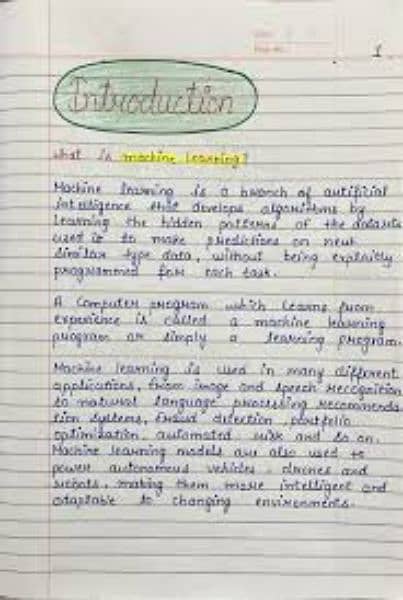 1
Introduction
what is machine learning?
Machine learning is a branch of artificial
intelligence that develops algorithms by
learning the hidden patterns of the datasets
used it to make predictions on new
similar type data, without being explicitly
programmed for each task.
A Computer program which learns from
experience is called a machine learning
program or simply a learning program.
Machine learning is used in many different
applications, from image and speech recognition
to natural language processing recommenda
tion systems, fraud detection, portfolio
optimization, automated task and so on.
Machine learning models are also used to
power autonomous vehicles, drones and
robots, making them more intelligent and
adaptable to changing environments.